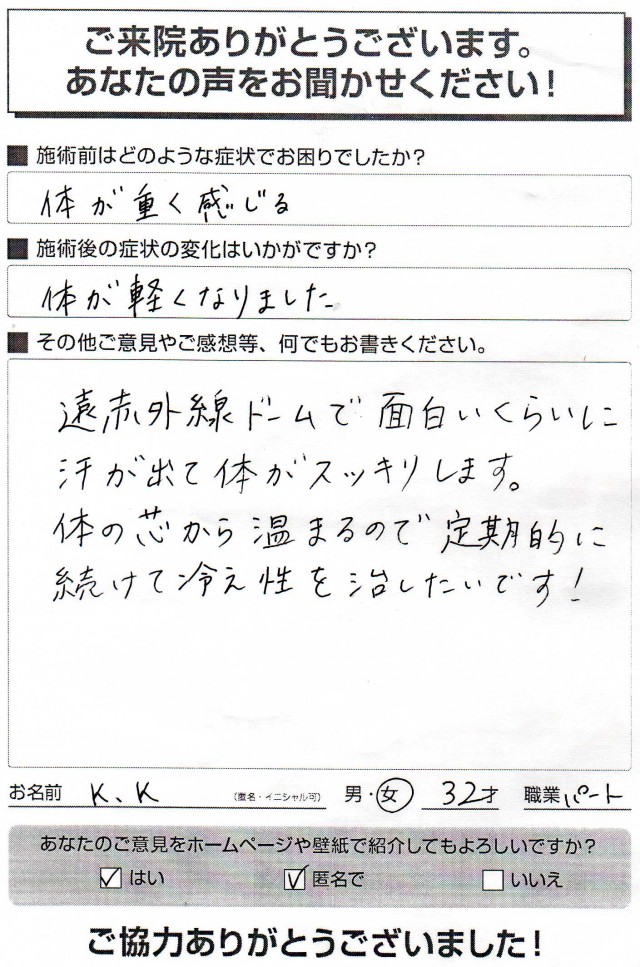 ご来院ありがとうございます。
あなたの声をお聞かせください!
■ 施術前はどのような症状でお困りでしたか?
体が重く感じる
■ 施術後の症状の変化はいかがですか?
体が軽くなりました
■ その他ご意見やご感想等、何でもお書きください。
遠赤外線ドームで面白いくらいに
汗が出て体がスッキリします。
体の芯から温まるので定期的に
続けて冷え性を治したいです!
お名前 K、K (匿名・イニシャル可) 男・女 32才 職業 パート
あなたのご意見をホームページや壁紙で紹介してもよろしいですか?
☑ はい ☑ 匿名で □ いいえ
ご協力ありがとうございました!